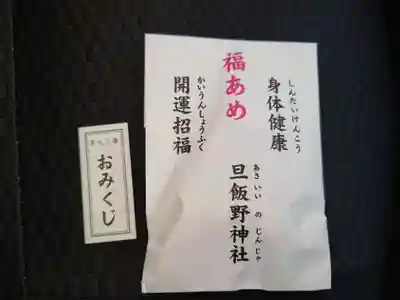 しんたいけんこう
身体健康
福あめ
かいうんしょうふく
開運招福
あさいい の じんじゃ
旦飯野神社
おみくじ